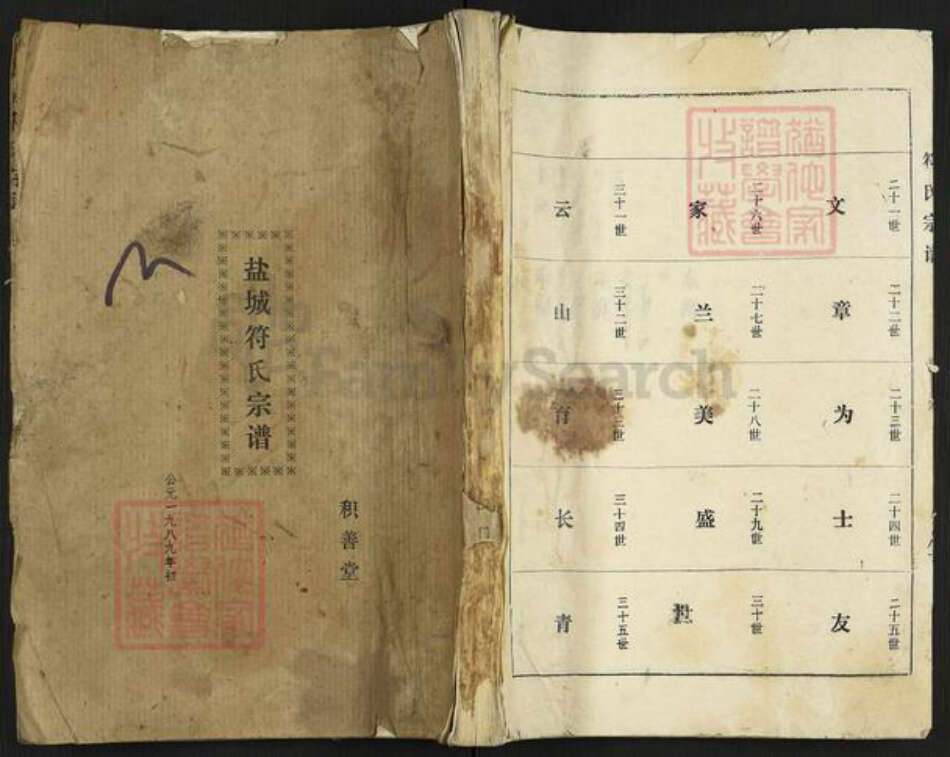 盐城符氏宗谱
积善堂
公元一九八九年初
符氏宗谱
二十一世
文
二十二世
章
二十三世
为
二十四世
士
二十五世
友
二十六世
家
二十七世
兰
二十八世
美
二十九世
盛
三十世
世
三十一世
云
三十二世
山
三十三世
育
三十四世
长
三十五世
青
FamilySearch